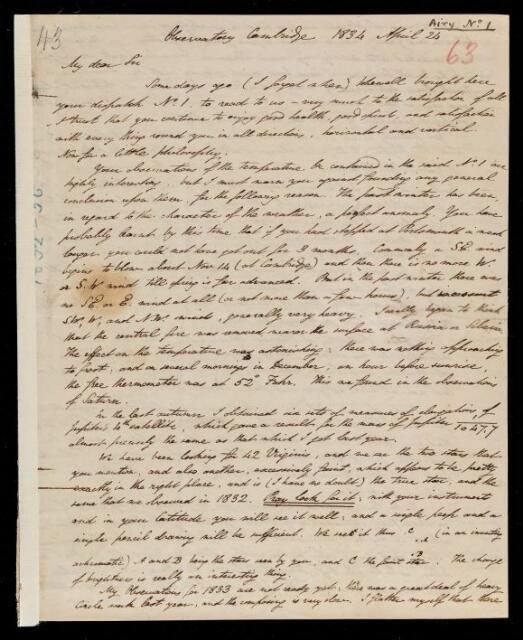 Airy No. 1
43
63
Observatory Cambridge 1834 April 24
My dear Sir
Some days ago (I forget when) Whewell brought here
your dispatch No. 1, to read to us – very much to the satisfaction of all
I trust that you continue to enjoy good health, good spirits, and satisfaction
with every thing round you in all directions, horizontal and vertical.
Now for a little philosophy.
Your observations of the temperature &c contained in the said No. 1 are
highly interesting, but I must warn you against founding any general
conclusion upon them, for the following reason. The past winter has been,
in regard to the character of the weather, a perfect anomaly. You have
probably learnt by this time that if you had stopped at Portsmouth a week
longer you could not have got out for 2 months. Commonly a SE wind
begins to blow about Nov 14 (at Cambridge) and then there is no more W.
or S.W wind till spring is far advanced. But in the past winter there was
no SE or E wind at all (or not more than a few hours), but incessant
SW, W, and N.W. winds, generally very heavy. I really began to think
that the central fire was unusually nearer the surface at Russia or Siberia.
The effect on the temperature was astonishing: there was nothing approaching
to frost, and on several mornings in December, an hour before sunrise,
the free thermometer was at 52° Fahr. This we found in the observations
of Saturn.
In the last autumn I obtained six sets of measures of elongations of
Jupiter's 4th satellite, which gave a result for the mass of Jupiter 1047.7
almost precisely the same as that which I got last year.
We have been looking for 42 Virginis, and we see the two stars that
you mention, and also another, excessively faint, which appears to be pretty
exactly in the right place, and is (I have no doubt) the true star, and the
same that we observed in 1832. Pray look for it, with your instrument
and in your latitude you will see it well, and a single peep and a
single pencil drawing will be sufficient. We see it thus C (in an inverting
A
B
achromatic) A and B being the stars seen by you, and C the faint star. The change
of brightness is really an interesting thing.
My Observations for 1833 are not ready yet, there was a great deal of heavy
work last year, and the composing is very slow. I flatter myself that there